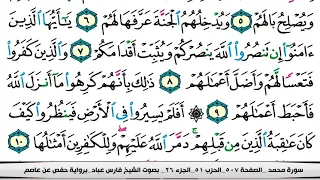 وَيُصْلِحُ بَالَهُمْ ٥ وَيُدْخِلُهُمُ ٱلْجَنَّةَ عَرَّفَهَا لَهُمْ ٦ يَٰٓأَيُّهَا ٱلَّذِينَ
ءَامَنُوٓا۟ إِن تَنصُرُوا۟ ٱللَّهَ يَنصُرْكُمْ وَيُثَبِّتْ أَقْدَامَكُمْ ٧ وَٱلَّذِينَ كَفَرُوا۟
فَتَعْسًا لَّهُمْ وَأَضَلَّ أَعْمَٰلَهُمْ ٨ ذَٰلِكَ بِأَنَّهُمْ كَرِهُوا۟ مَآ أَنزَلَ ٱللَّهُ
فَأَحْبَطَ أَعْمَٰلَهُمْ ٩ ۞ أَفَلَمْ يَسِيرُوا۟ فِى ٱلْأَرْضِ فَيَنظُرُوا۟ كَيْفَ
كَانَ عَٰقِبَةُ ٱلَّذِينَ مِن قَبْلِهِمْ ۚ دَمَّرَ ٱللَّهُ عَلَيْهِمْ ۖ وَلِلْكَٰفِرِينَ أَمْثَٰلُهَا ١٠
سورة محمد _ الصفحة ٥٠٧ _ الحزب ٥١ _ الجزء ٢٦ _ بصوت الشيخ فارس عباد _ برواية حفص عن عاصم